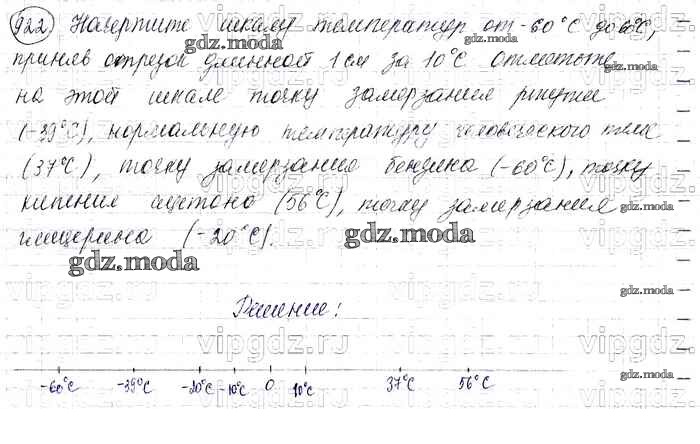 922. Начертите шкалу температур от -60°C до 60°C,
приняв отрезок длинной 1 см за 10°C Отметьте
на этой шкале точку замерзания ртути
(-39°C), нормальную температуру человеческого тела
(37°C), точку замерзания бензина (-60°C), точку
кипения ацетона (56°C), точку замерзания
глицерина (-20°C).
gdz.moda
gdz.moda
gdz.moda
gdz.moda
gdz.moda
gdz.moda
gdz.moda
gdz.moda
vipgdz.ru
vipgdz.ru
vipgdz.ru
Решение:
-60°C -39°C -20°C -10°C 0 10°C 37°C 56°C